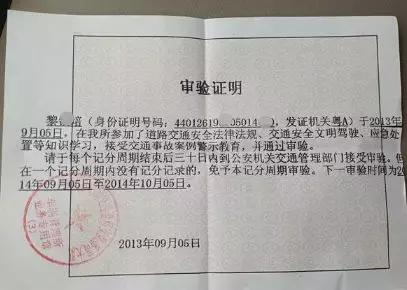 审验证明
黎 (身份证明号码: 44012619 05014 , 发证机关粤A) 于2013年
09月05日, 在我所参加了道路交通安全法律法规、交通安全文明驾驶、应急处
置等知识学习, 接受交通事故案例警示教育, 并通过审验。
请于每个记分周期结束后三十日内到公安机关交通管理部门接受审验。但
在一个记分周期内没有记分记录的, 免予本记分周期审验。下一审验时间为2
014年09月05日至2014年10月05日。
业务专用章
(3)
2013年09月05日